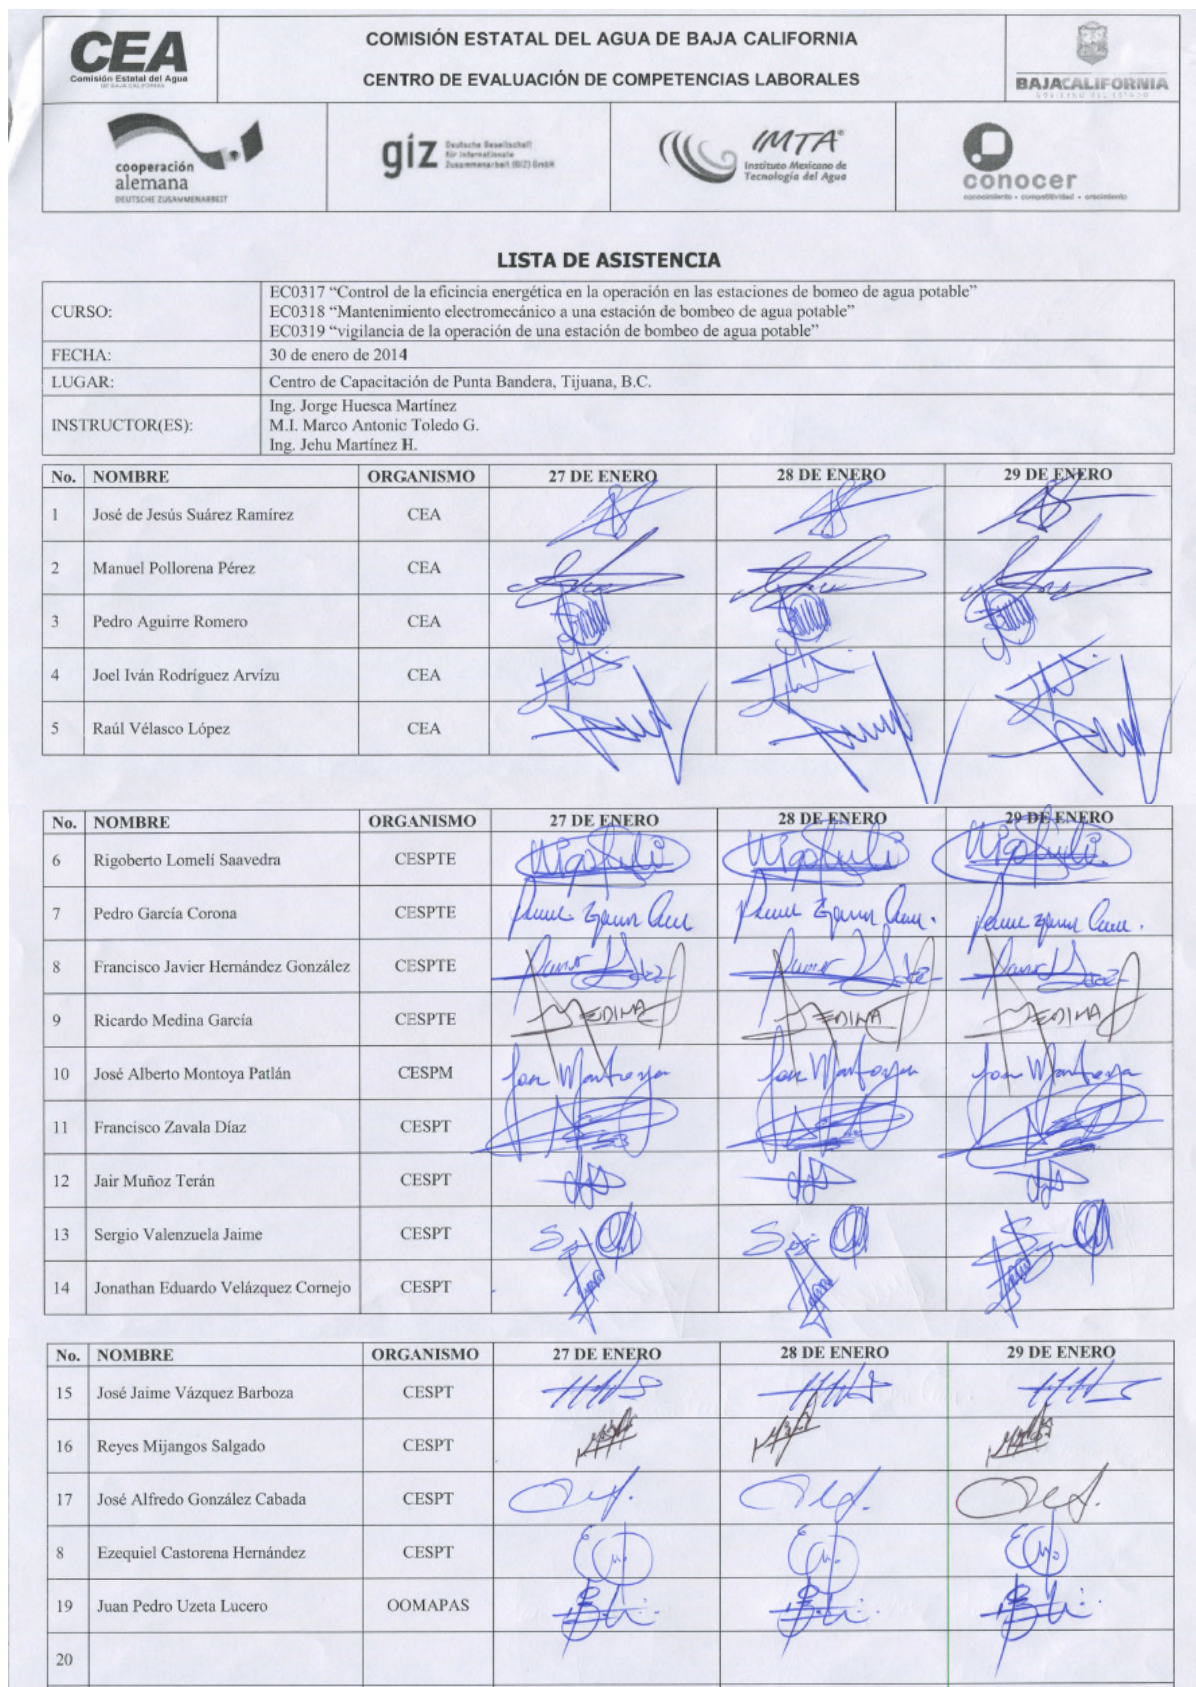 CEA
Comisión Estatal del Agua
DE BAJA CALIFORNIA
COMISIÓN ESTATAL DEL AGUA DE BAJA CALIFORNIA
CENTRO DE EVALUACIÓN DE COMPETENCIAS LABORALES
BAJACALIFORNIA
GOBIERNO DEL ESTADO
cooperación
alemana
DEUTSCHE ZUSAMMENARBEIT
giz
Deutsche Gesellschaft
für Internationale
Zusammenarbeit (GIZ) GmbH
IMTA
Instituto Mexicano de
Tecnología del Agua
conocer
conocimiento • competitividad • crecimiento
LISTA DE ASISTENCIA
CURSO:
EC0317 “Control de la eficincia energética en la operación en las estaciones de bomeo de agua potable”
EC0318 “Mantenimiento electromecánico a una estación de bombeo de agua potable”
EC0319 “vigilancia de la operación de una estación de bombeo de agua potable”
FECHA: 30 de enero de 2014
LUGAR: Centro de Capacitación de Punta Bandera, Tijuana, B.C.
INSTRUCTOR(ES):
Ing. Jorge Huesca Martínez
M.I. Marco Antonio Toledo G.
Ing. Jehu Martínez H.
No. NOMBRE ORGANISMO 27 DE ENERO 28 DE ENERO 29 DE ENERO
1 José de Jesús Suárez Ramírez CEA
2 Manuel Pollorena Pérez CEA
3 Pedro Aguirre Romero CEA
4 Joel Iván Rodríguez Arvízu CEA
5 Raúl Vélasco López CEA
No. NOMBRE ORGANISMO 27 DE ENERO 28 DE ENERO 29 DE ENERO
6 Rigoberto Lomelí Saavedra CESPTE
7 Pedro García Corona CESPTE
8 Francisco Javier Hernández González CESPTE
9 Ricardo Medina García CESPTE MEDINA MEDINA MEDINA
10 José Alberto Montoya Patlán CESPM
11 Francisco Zavala Díaz CESPT
12 Jair Muñoz Terán CESPT
13 Sergio Valenzuela Jaime CESPT
14 Jonathan Eduardo Velázquez Cornejo CESPT
No. NOMBRE ORGANISMO 27 DE ENERO 28 DE ENERO 29 DE ENERO
15 José Jaime Vázquez Barboza CESPT
16 Reyes Mijangos Salgado CESPT
17 José Alfredo González Cabada CESPT
8 Ezequiel Castorena Hernández CESPT
19 Juan Pedro Uzeta Lucero OOMAPAS
20